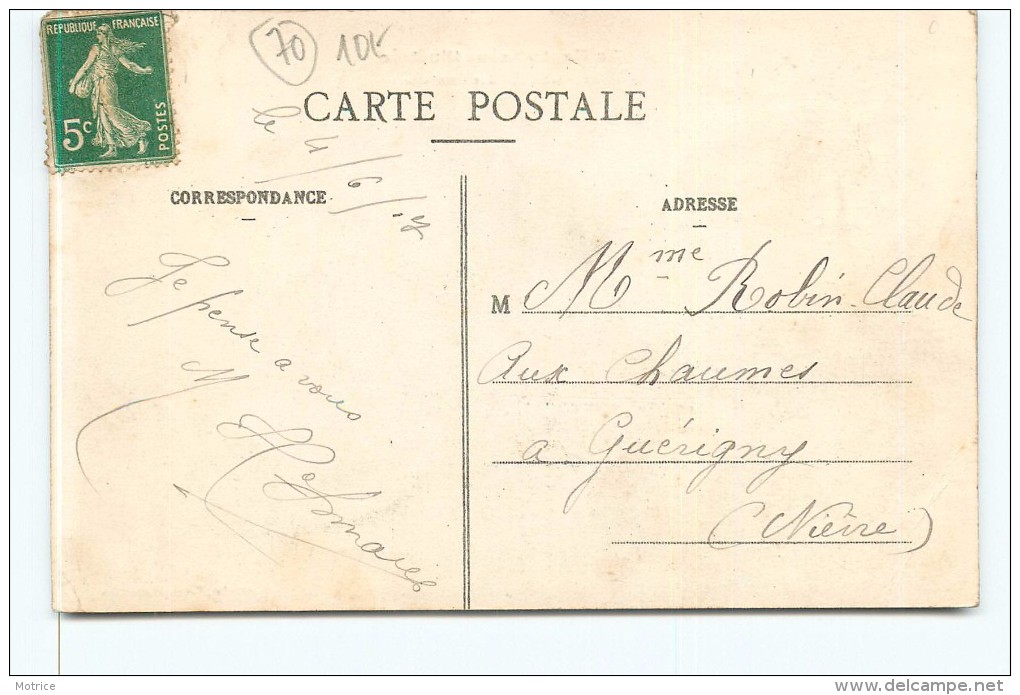 REPUBLIQUE FRANÇAISE
5c
POSTES
70
CARTE POSTALE
CORRESPONDANCE
ADRESSE
le 4/6/
Je pense a vous
M Mme Robin-Claude
Aux Chaumes
a Guérigny
(Nièvre)
Motrice
www.delcampe.net